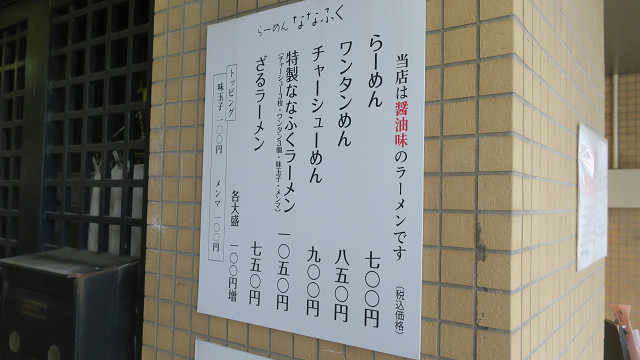 らーめん ななふく
当店は醤油味のラーメンです
(税込価格)
らーめん 七〇〇円
ワンタンめん 八五〇円
チャーシューめん 九〇〇円
特製ななふくラーメン 一〇五〇円
(チャーシュー3枚・ワンタン3個・味玉子・メンマ)
ざるラーメン 七五〇円
各大盛 一〇〇円増
トッピング
味玉子 一〇〇円 メンマ 一〇〇円